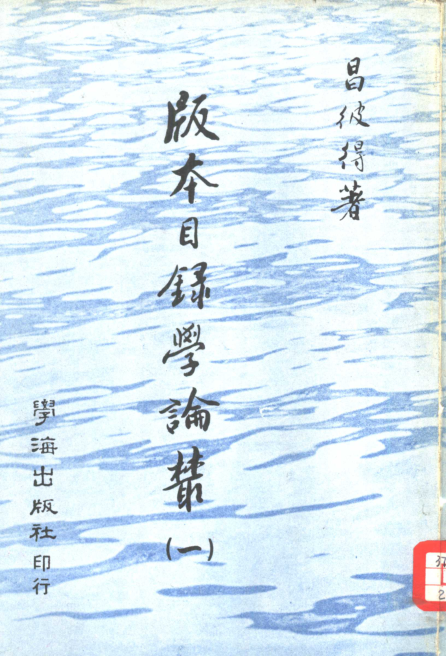 昌彼得著
版本目録學論叢(一)
學海出版社印行